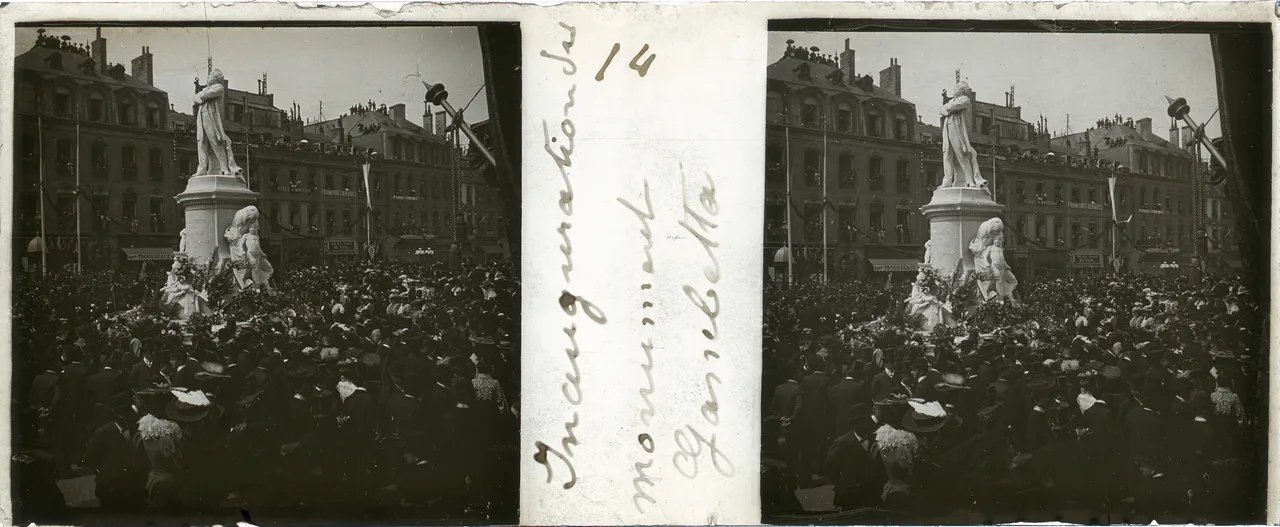 14
Inauguration du
monument
Gambetta